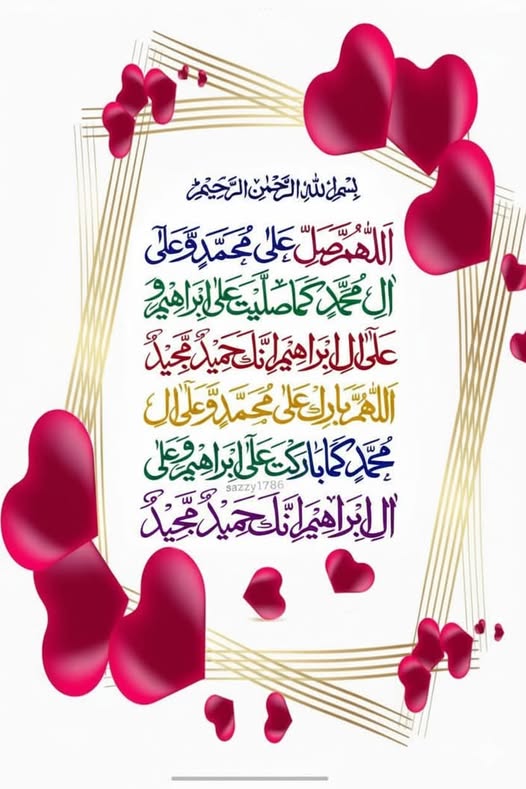 بِسْمِ اللهِ الرَّحْمٰنِ الرَّحِيْمِ
اَللّٰهُمَّ صَلِّ عَلٰى مُحَمَّدٍ وَّعَلٰٓى
اٰلِ مُحَمَّدٍ كَمَا صَلَّيْتَ عَلٰٓى اِبْرَاهِيْمَ وَ
عَلٰٓى اٰلِ اِبْرَاهِيْمَ اِنَّكَ حَمِيْدٌ مَّجِيْدٌ
اَللّٰهُمَّ بَارِكْ عَلٰى مُحَمَّدٍ وَّعَلٰٓى اٰلِ
مُحَمَّدٍ كَمَا بَارَكْتَ عَلٰٓى اِبْرَاهِيْمَ وَعَلٰٓى
sazzy1786
اٰلِ اِبْرَاهِيْمَ اِنَّكَ حَمِيْدٌ مَّجِيْدٌ